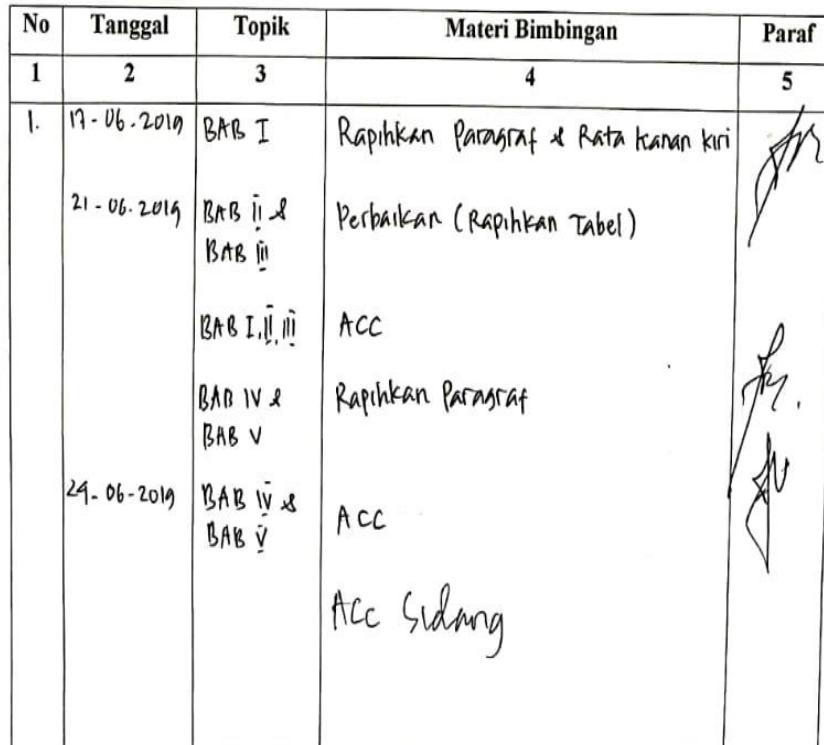 No Tanggal Topik Materi Bimbingan Paraf
1 2 3 4 5
1. 17-06-2019 BAB I Rapihkan Paragraf & Rata kanan kiri
21-06-2019 BAB II & Perbaikan (Rapihkan Tabel)
BAB III
BAB I, II, III ACC
BAB IV & Rapihkan Paragraf
BAB V
24-06-2019 BAB IV & ACC
BAB V
ACC Sidang